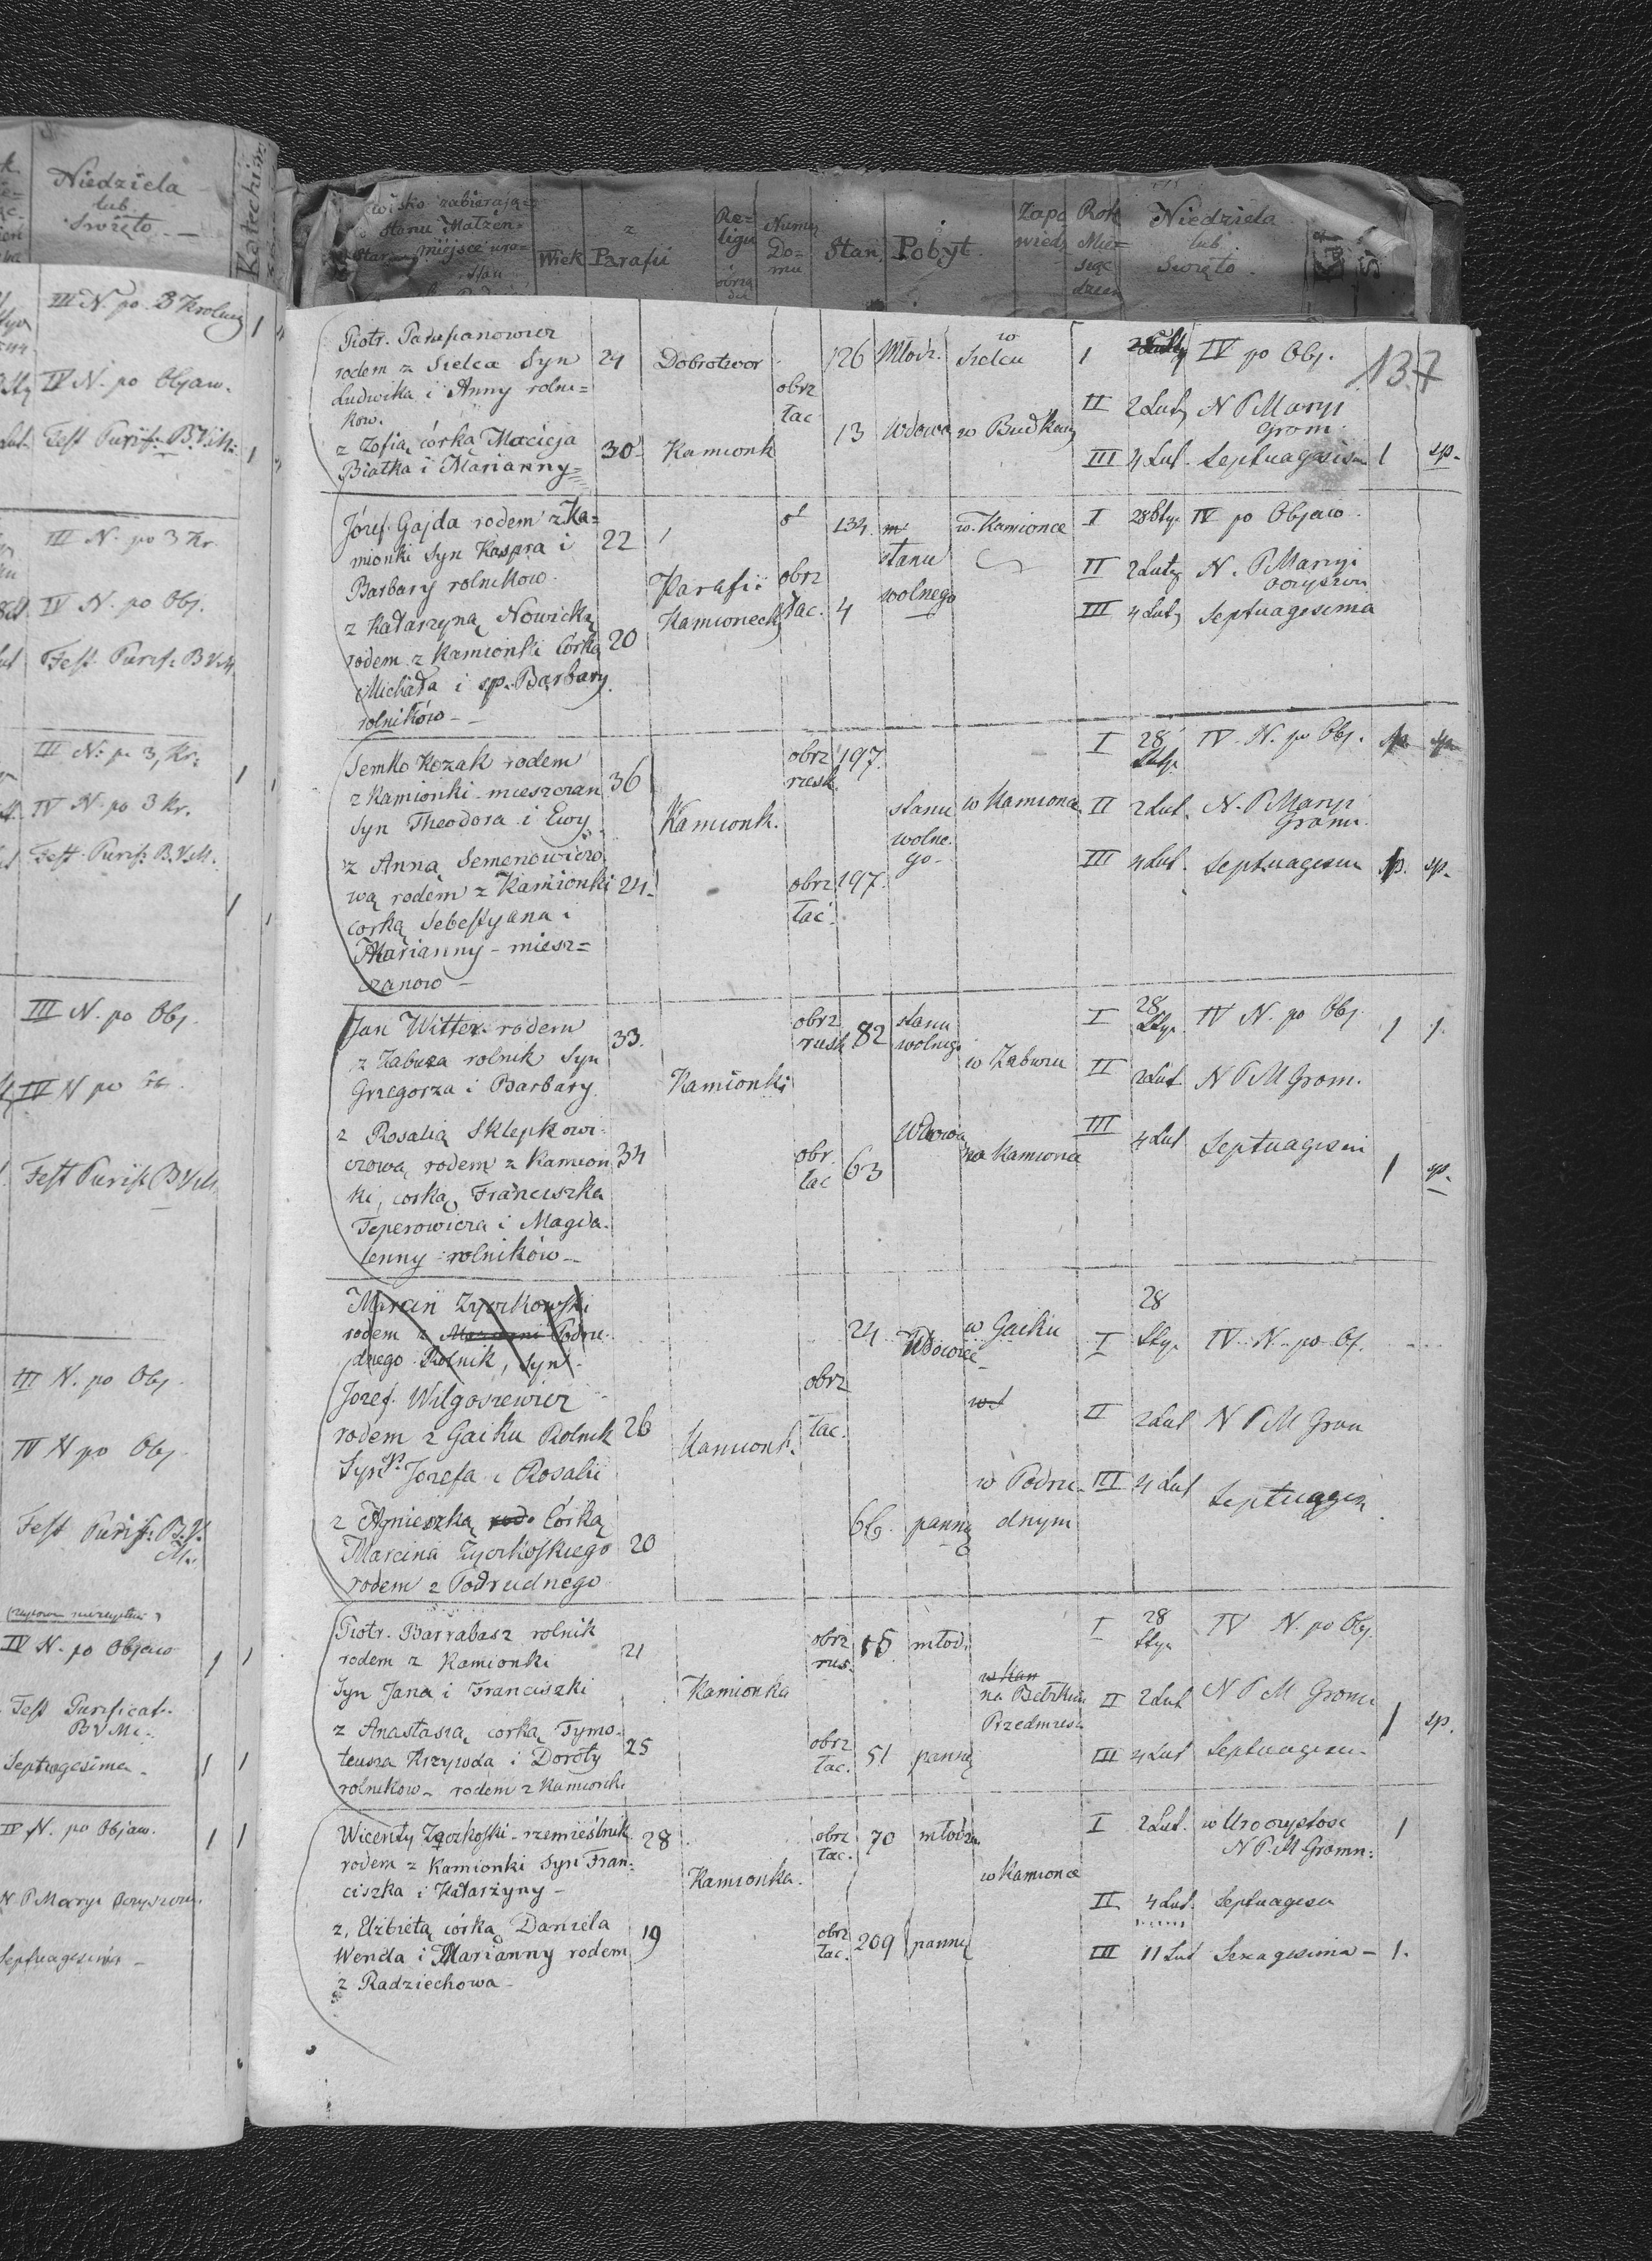 Niedziela
lub
Swięto
Katechizm
III N. po 3 Krolucy
IV N. po Objaw.
Fest Purif: B.V.M.
III N. po 3 Kr.
IV N. po Obj.
Fest Purif: B V M.
III N. po 3, Kr:
IV N. po 3 Kr.
Fest Purif: B.V.M.
III N. po Obj.
IV N po
Fest Purif: B V M
III N. po Obj.
IV N po Obj
Fest Purif: B.V.
M.
IV N. po Objaw
Fest Purificat.
B V M.
Septuagesima.
IV N. po Objaw.
N P Maryi Oczyszcen.
Septuagesima
stanu Małżeń-
miejsce uro-
Wiek
z
Parafii
Re-
ligii
Numer
Do-
mu
Stan
Pobyt.
Zapo
wiedz
Rok
Mie-
siąc
dzien
Niedziela
lub
Swięto.
137
Piotr. Parupanowicz
rodem z Sielca Syn
Ludwika i Anny rolni=
kow.
z Zofią córką Macieja
Białka i Marianny=
24 Dobrotwor 126 Młodz. w Sielcu I IV po Obj.
obrz
łac
II 2 Lut N P Maryi
Grom.
30 Kamionk 13 Wdowa w Budkach III 4 Lut. Septuagesim 1 sp.
Józef. Gajda rodem z Ka=
mionki Syn Kaspra i
Barbary rolnikow.
z Katarzyną Nowicką
rodem z Kamionki Córką
Michała i sp. Barbary
rolników
22 134. w. Kamionce I 28 Sty. IV po Objaw.
stanu
wolnego
Parafii
Kamioneck
obrz
łac. 4
II 2 Luty N. P Maryi
oczyszcn
20 III 4 Lut Septuagesima
Semko Kozak rodem
z Kamionki mieszczan
Syn Theodora i Ewy
z Anną Semenowiczo
wą rodem z Kamionki
corką Sebestyana i
Marianny - miesz=
czanow
36 obrz
rusk.
197. I 28
Sty. IV. N. po Obj.
Kamionk. stanu
wolne.
go-
w Kamionce II 2 Lut. N. P Maryi
Grom.
24. obrz
łac.
197. III 4 Lut. Septuagesim sp. sp.
Jan Witter rodem
z Zabuza rolnik Syn
Grzegorza i Barbary
z Rosalią Sklepkowi-
czową rodem z Kamion
ki, corką Franciszka
Teperowicza i Magda-
lenny rolników
33. obrz
rusk 82 stanu
wolnego
w Zabuzu I 28
Sty. IV N. po Obj 1 1.
Kamionki II 2 Lut N P M Grom.
34 obr
łac 63 Wdowa w Kamionce III 4 Lut Septuagesim 1 sp.
Marcin Zyczkowski
rodem z Podru-
dnego Rolnik, Syn
Jozef. Wilgosiewicz
rodem z Gaiku Rolnik
Syn sp. Jozefa i Rosalii
z Agnieszką Córką
Marcina Zyczkoskiego
rodem z Podrudnego
24 Wdowiec w Gaiku I 28
Sty. IV. N. po Oj.
26 Kamionk. obrz
łac. II 2 Lut N P M Grom
66. panną w Podru-
dnym III 4 Lut Septuagesim
20
Piotr. Barrabasz rolnik
rodem z Kamionki
Syn Jana i Franciszki
z Anastasią corką Tymo-
teusza Krzywda i Doroty
rolnikow - rodem z Kamionki
21 obrz
rus. 15 młod. I 28
Sty. IV N. po Obj.
Kamionka na
Przedmiesc II 2 Lut N P M Grom 1 sp.
25 obrz
łac. 51 panną III 4 Lut Septuagesi-
Wicenty Zączkoski - rzemieślnik
rodem z Kamionki Syn Fran-
ciszka i Katarzyny -
z. Elżbietą córką Daniela
Wenda i Marianny rodem
z Radziechowa -
28 obrz
łac. 70 młodz. I 2 Lut. w Uroczystosc
N P. M Gromn: 1
Kamionka. w Kamionce
II 4 Lut. Septuagesi
19 obrz
łac. 209 panną III 11 Lut Sexagesima - 1.